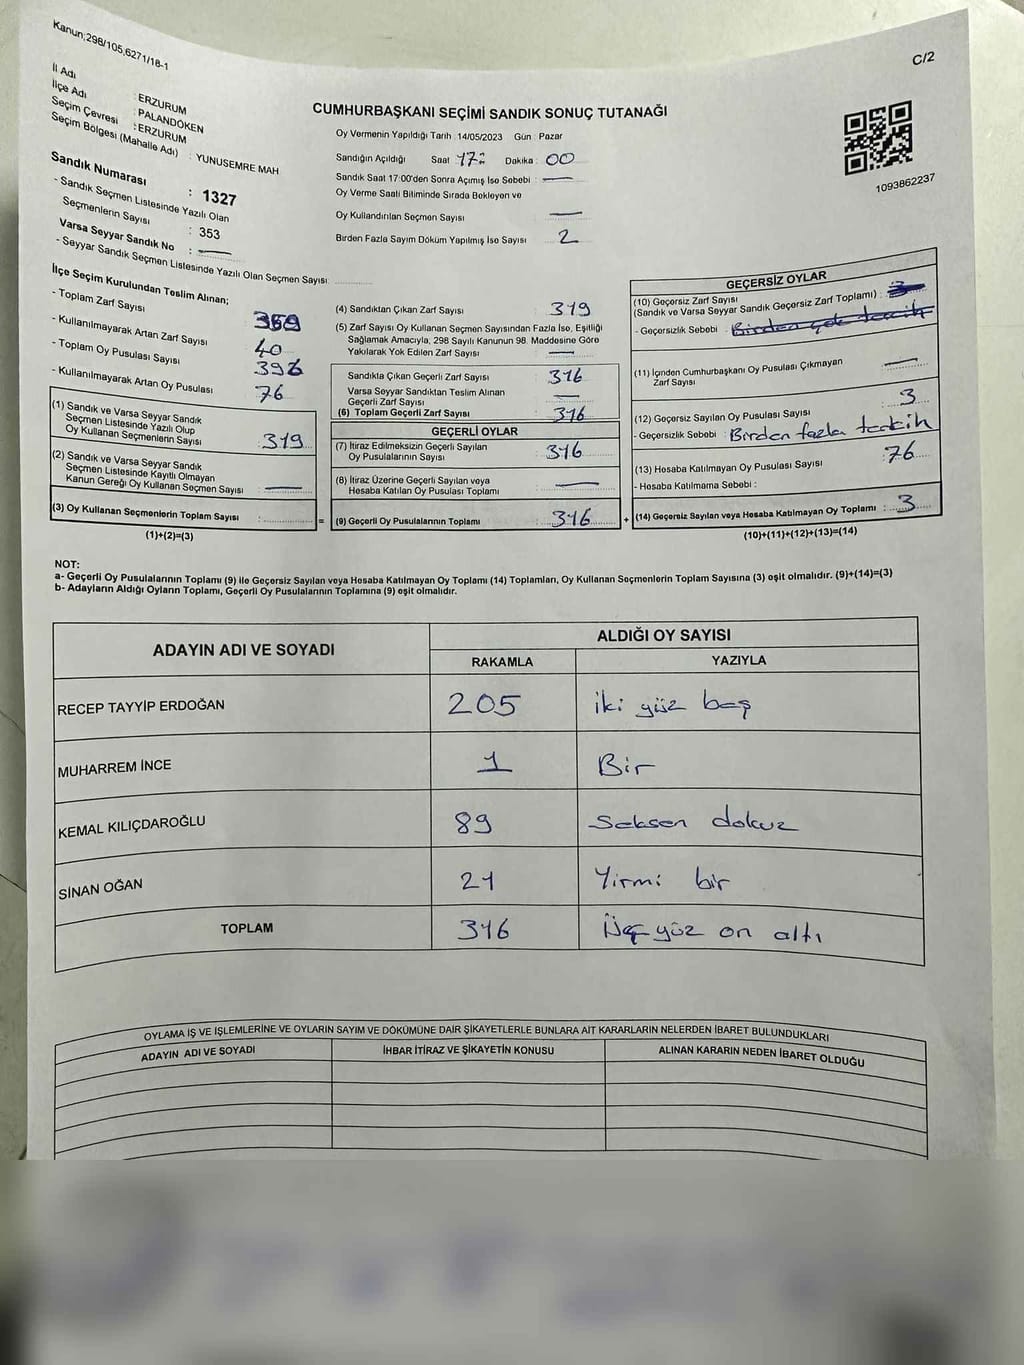 Kanun;298/105,6271/18-1
C/2
İl Adı : ERZURUM
İlçe Adı : PALANDÖKEN
Seçim Çevresi : ERZURUM
Seçim Bölgesi (Mahalle Adı) : YUNUSEMRE MAH
Sandık Numarası : 1327
- Sandık Seçmen Listesinde Yazılı Olan
Seçmenlerin Sayısı : 353
Varsa Seyyar Sandık No :
- Seyyar Sandık Seçmen Listesinde Yazılı Olan Seçmen Sayısı :
CUMHURBAŞKANI SEÇİMİ SANDIK SONUÇ TUTANAĞI
Oy Vermenin Yapıldığı Tarih : 14/05/2023 Gün : Pazar
Sandığın Açıldığı Saat 17: Dakika : 00
Sandık Saat 17:00'den Sonra Açımış İse Sebebi :
Oy Verme Saati Bitiminde Sırada Bekleyen ve
Oy Kullandırılan Seçmen Sayısı :
Birden Fazla Sayım Döküm Yapılmış İse Sayısı : 2
1093862237
İlçe Seçim Kurulundan Teslim Alınan;
- Toplam Zarf Sayısı
- Kullanılmayarak Artan Zarf Sayısı 40
- Toplam Oy Pusulası Sayısı
- Kullanılmayarak Artan Oy Pusulası 76
(1) Sandık ve Varsa Seyyar Sandık
Seçmen Listesinde Yazılı Olup
Oy Kullanan Seçmenlerin Sayısı : 319
(2) Sandık ve Varsa Seyyar Sandık
Seçmen Listesinde Kayıtlı Olmayan
Kanun Gereği Oy Kullanan Seçmen Sayısı :
(3) Oy Kullanan Seçmenlerin Toplam Sayısı :
(1)+(2)=(3)
=
(4) Sandıktan Çıkan Zarf Sayısı : 319
(5) Zarf Sayısı Oy Kullanan Seçmen Sayısından Fazla İse, Eşitliği
Sağlamak Amacıyla, 298 Sayılı Kanunun 98. Maddesine Göre
Yakılarak Yok Edilen Zarf Sayısı :
Sandıkta Çıkan Geçerli Zarf Sayısı : 316
Varsa Seyyar Sandıktan Teslim Alınan
Geçerli Zarf Sayısı :
(6) Toplam Geçerli Zarf Sayısı : 316
GEÇERLİ OYLAR
(7) İtiraz Edilmeksizin Geçerli Sayılan
Oy Pusulalarının Sayısı : 316
(8) İtiraz Üzerine Geçerli Sayılan veya
Hesaba Katılan Oy Pusulası Toplamı :
(9) Geçerli Oy Pusulalarının Toplamı : 316
+
GEÇERSİZ OYLAR
(10) Geçersiz Zarf Sayısı
(Sandık ve Varsa Seyyar Sandık Geçersiz Zarf Toplamı) : 3
- Geçersizlik Sebebi : Birden çok tercih
(11) İçinden Cumhurbaşkanı Oy Pusulası Çıkmayan
Zarf Sayısı :
(12) Geçersiz Sayılan Oy Pusulası Sayısı : 3
- Geçersizlik Sebebi : Birden fazla tercih
(13) Hesaba Katılmayan Oy Pusulası Sayısı : 76
- Hesaba Katılmama Sebebi :
(14) Geçersiz Sayılan veya Hesaba Katılmayan Oy Toplamı : 3
(10)+(11)+(12)+(13)=(14)
NOT:
a- Geçerli Oy Pusulalarının Toplamı (9) ile Geçersiz Sayılan veya Hesaba Katılmayan Oy Toplamı (14) Toplamları, Oy Kullanan Seçmenlerin Toplam Sayısına (3) eşit olmalıdır. (9)+(14)=(3)
b- Adayların Aldığı Oyların Toplamı, Geçerli Oy Pusulalarının Toplamına (9) eşit olmalıdır.
ADAYIN ADI VE SOYADI ALDIĞI OY SAYISI
RAKAMLA YAZIYLA
RECEP TAYYİP ERDOĞAN 205 iki yüz beş
MUHARREM İNCE 1 Bir
KEMAL KILIÇDAROĞLU 89 Seksen dokuz
SİNAN OĞAN 21 Yirmi bir
TOPLAM 316 Üç yüz on altı
OYLAMA İŞ VE İŞLEMLERİNE VE OYLARIN SAYIM VE DÖKÜMÜNE DAİR ŞİKAYETLERLE BUNLARA AİT KARARLARIN NELERDEN İBARET BULUNDUKLARI
ADAYIN ADI VE SOYADI İHBAR İTİRAZ VE ŞİKAYETİN KONUSU ALINAN KARARIN NEDEN İBARET OLDUĞU